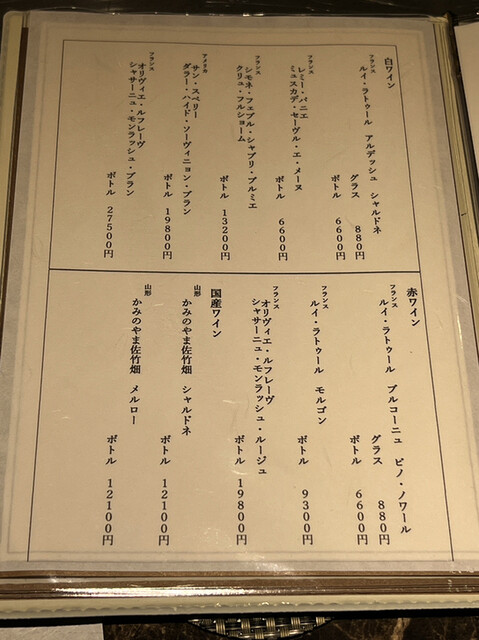 白ワイン
フランス
ルイ・ラトゥール　アルデッシュ　シャルドネ
グラス　880円
ボトル　6600円
フランス
レミー・パニエ
ミュスカデ・セーヴル・エ・メーヌ
ボトル　6600円
フランス
シモネ・フェブル・シャブリ・プルミエ
クリュ・フルショーム
ボトル　13200円
アメリカ
サン・スペリー
ダラー・ハイド・ソーヴィニョン・ブラン
ボトル　19800円
フランス
オリヴィエ・ルフレーヴ
シャサーニュ・モンラッシュ・ブラン
ボトル　27500円
赤ワイン
フランス
ルイ・ラトゥール　ブルゴーニュ　ピノ・ノワール
グラス　880円
ボトル　6600円
フランス
ルイ・ラトゥール　モルゴン
ボトル　9300円
フランス
オリヴィエ・ルフレーヴ
シャサーニュ・モンラッシュ・ルージュ
ボトル　19800円
国産ワイン
山形
かみのやま佐竹畑　シャルドネ
ボトル　12100円
山形
かみのやま佐竹畑　メルロー
ボトル　12100円